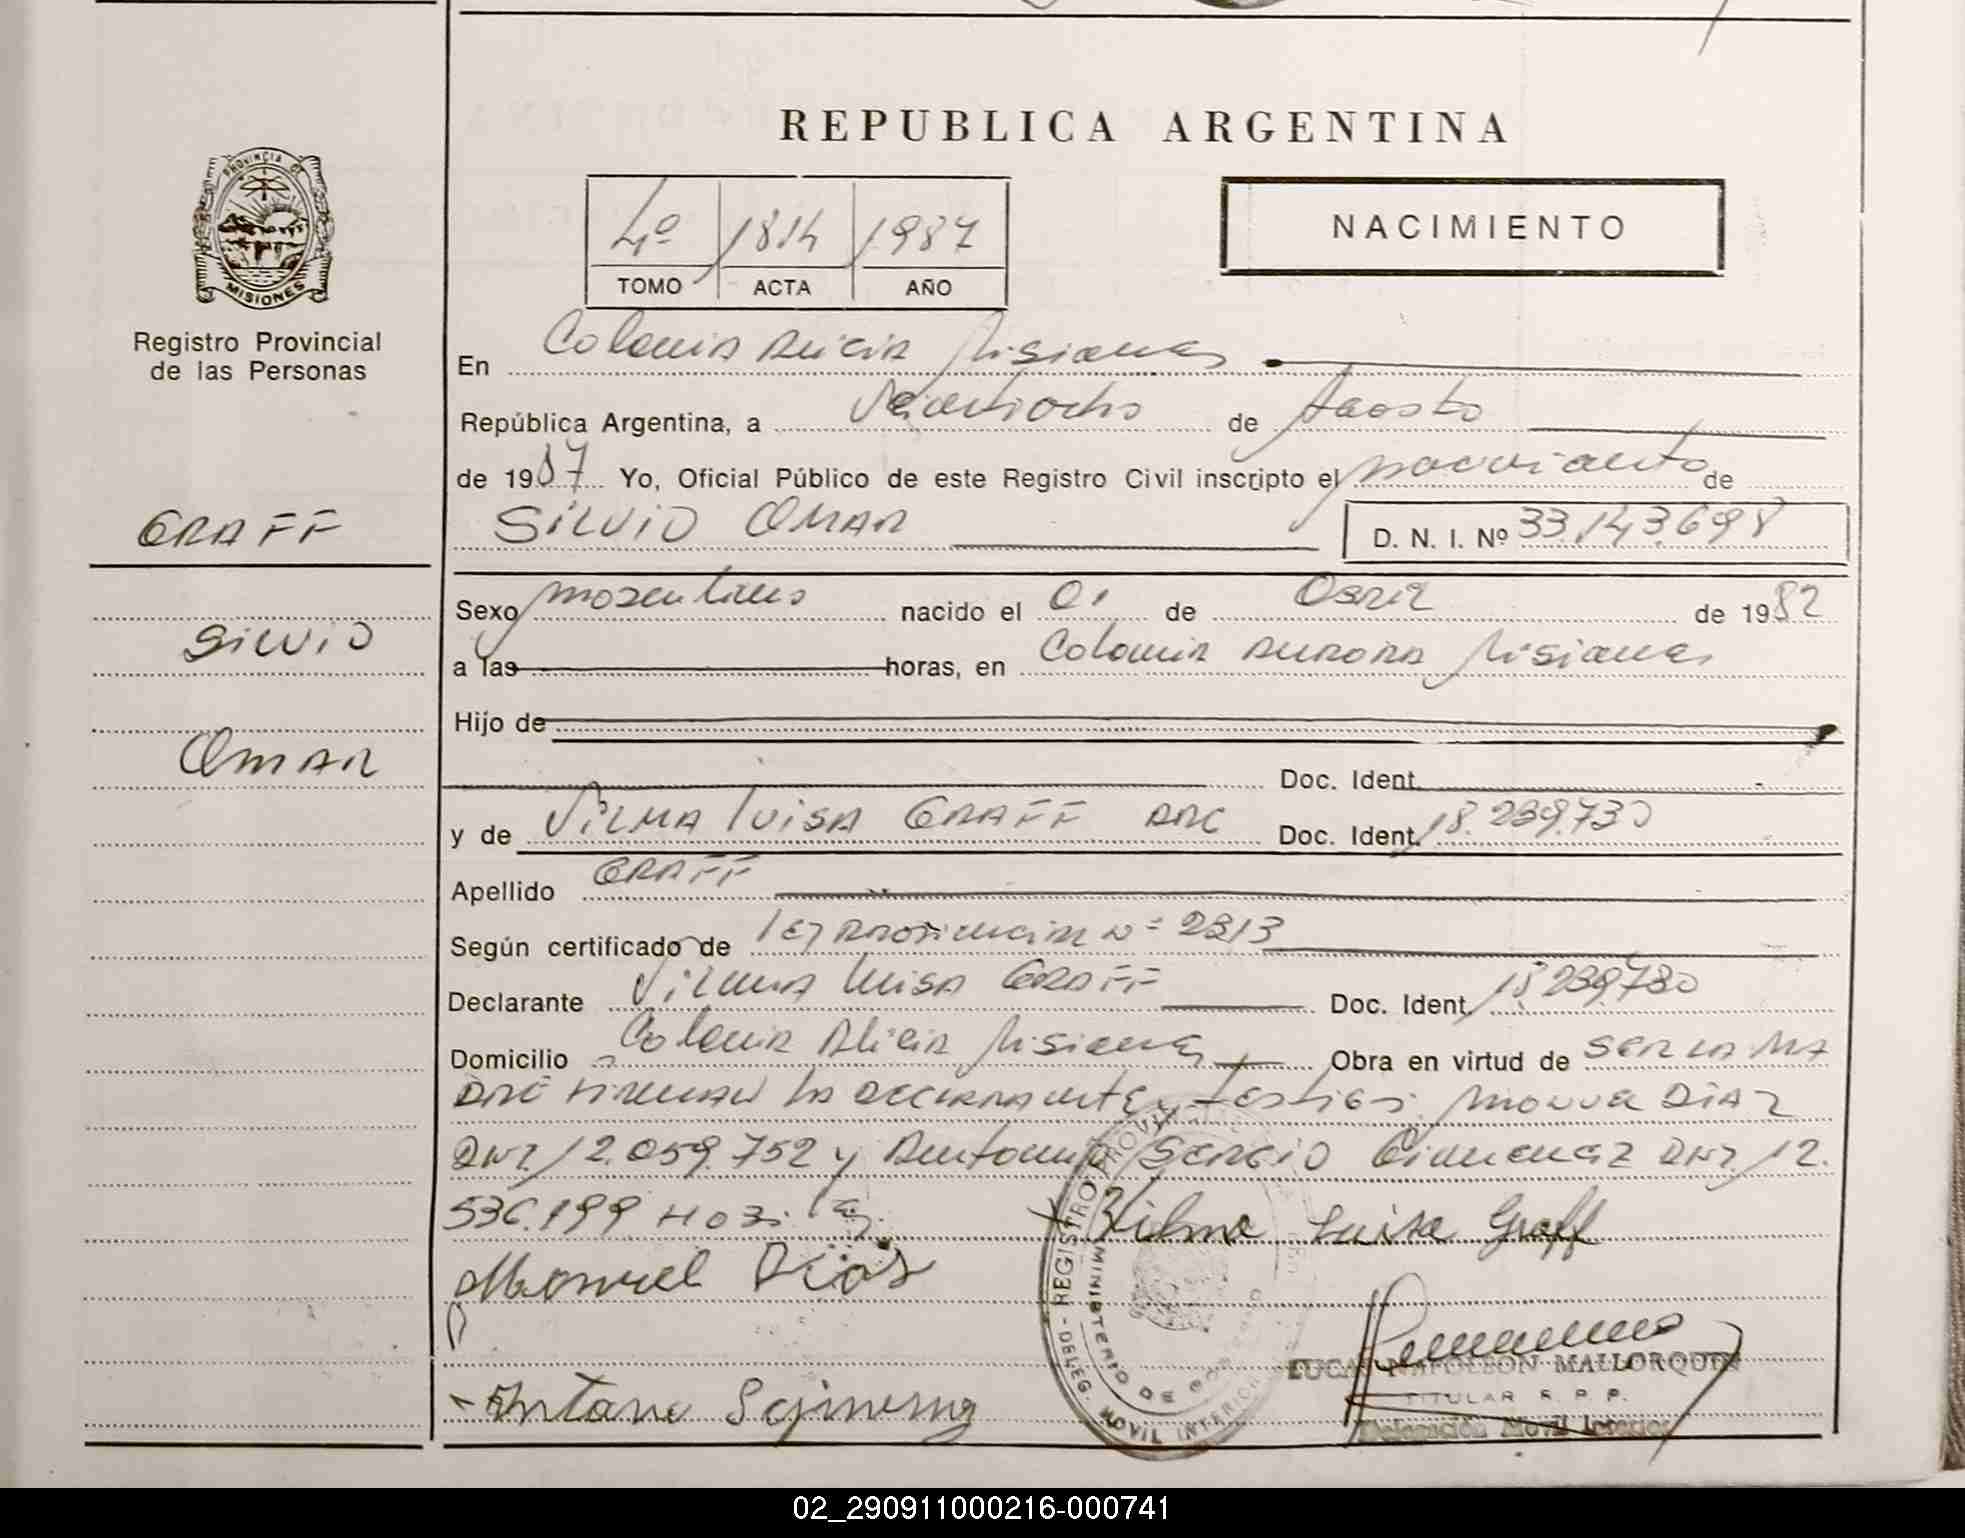 REPUBLICA ARGENTINA
PROVINCIA DE
MISIONES
Registro Provincial
de las Personas
4º 1814 1987
TOMO ACTA AÑO
NACIMIENTO
En Colonia Alicia Misiones
República Argentina, a Veintiocho de Agosto
de 1987 Yo, Oficial Público de este Registro Civil inscripto el nacimiento de
GRAFF
SILVIO OMAR D. N. I. Nº 33.143.698
Sexo masculino nacido el 01 de Abril de 1982
SILVIO
a las horas, en Colonia Aurora Misiones
Hijo de
OMAR
Doc. Ident.
y de VILMA LUISA GRAFF ARG Doc. Ident. 18.239.730
Apellido GRAFF
Según certificado de Ley Provincial Nº 2313
Declarante Vilma Luisa GRAFF Doc. Ident. 18.239.730
Domicilio Colonia Alicia Misiones Obra en virtud de SER LA MA
DRE firman la declarante y testigos Manuel DIAZ
DNI. 12.059.752 y Antonio SERGIO Gimenez DNI. 12.
536.199
Vilma Luisa Graff
Manuel Dias
REGISTRO PROVINCIAL
MINISTERIO DE GOBIERNO
DELEG. MOVIL INTERIOR
LUCAS NAPOLEON MALLORQUIN
TITULAR R. P. P.
Delegación Movil Interior
02_290911000216-000741